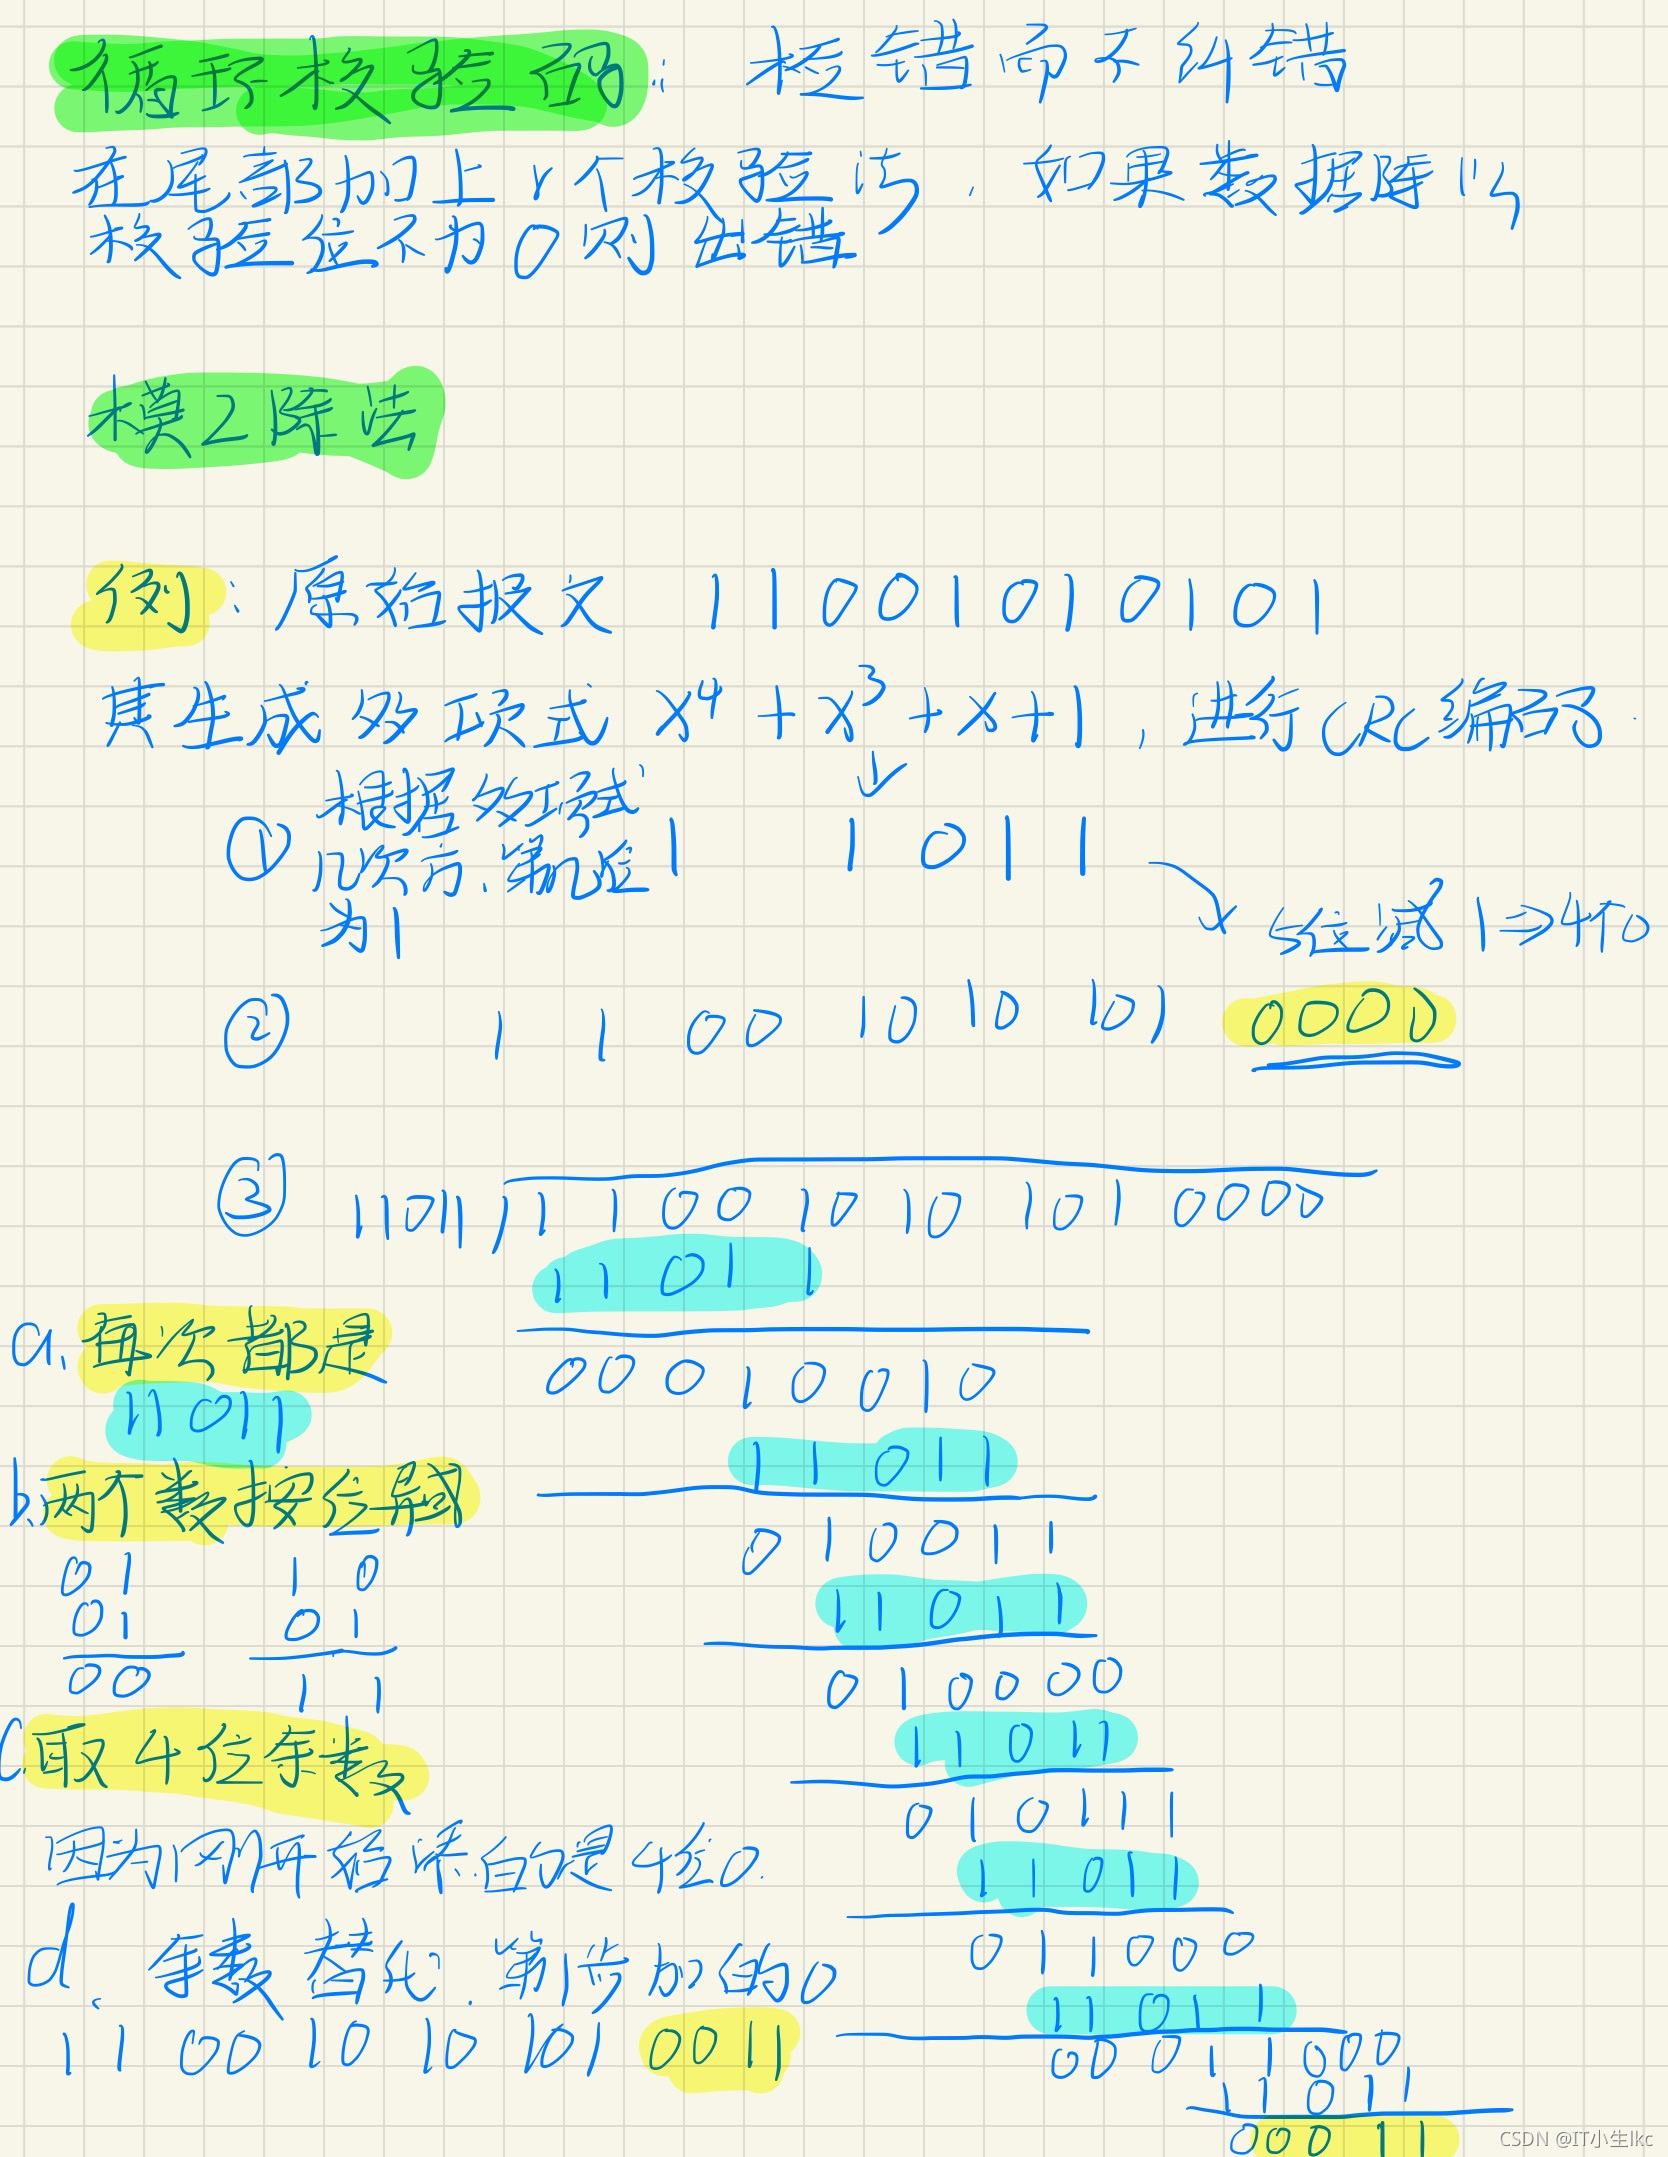 循环校验码: 检错而不纠错
在尾部加上r个校验
如果数据除以
校验位不为0则出错
模2除法
例: 原始报文 11001010101
其生成多项式 x⁴+x³+x+1, 进行CRC编码
① 根据多项式
几次方、第几位
为1
1 1011
5位减1⇒4个0
② 1 1 00 10 10 101 0000
③ 11011 1 1 00 10 10 101 0000
11011
00010010
11011
010011
11011
010000
11011
010111
11011
011000
11011
00011000
11011
00011
a. 每次都是
11011
b. 两个数按位减
01 10
01 01
00 11
c. 取4位余数
因为刚开始添的是4位0.
d. 余数替代、第1步加的0
1 1 00 10 10 101 0011
CSDN @IT小生lkc